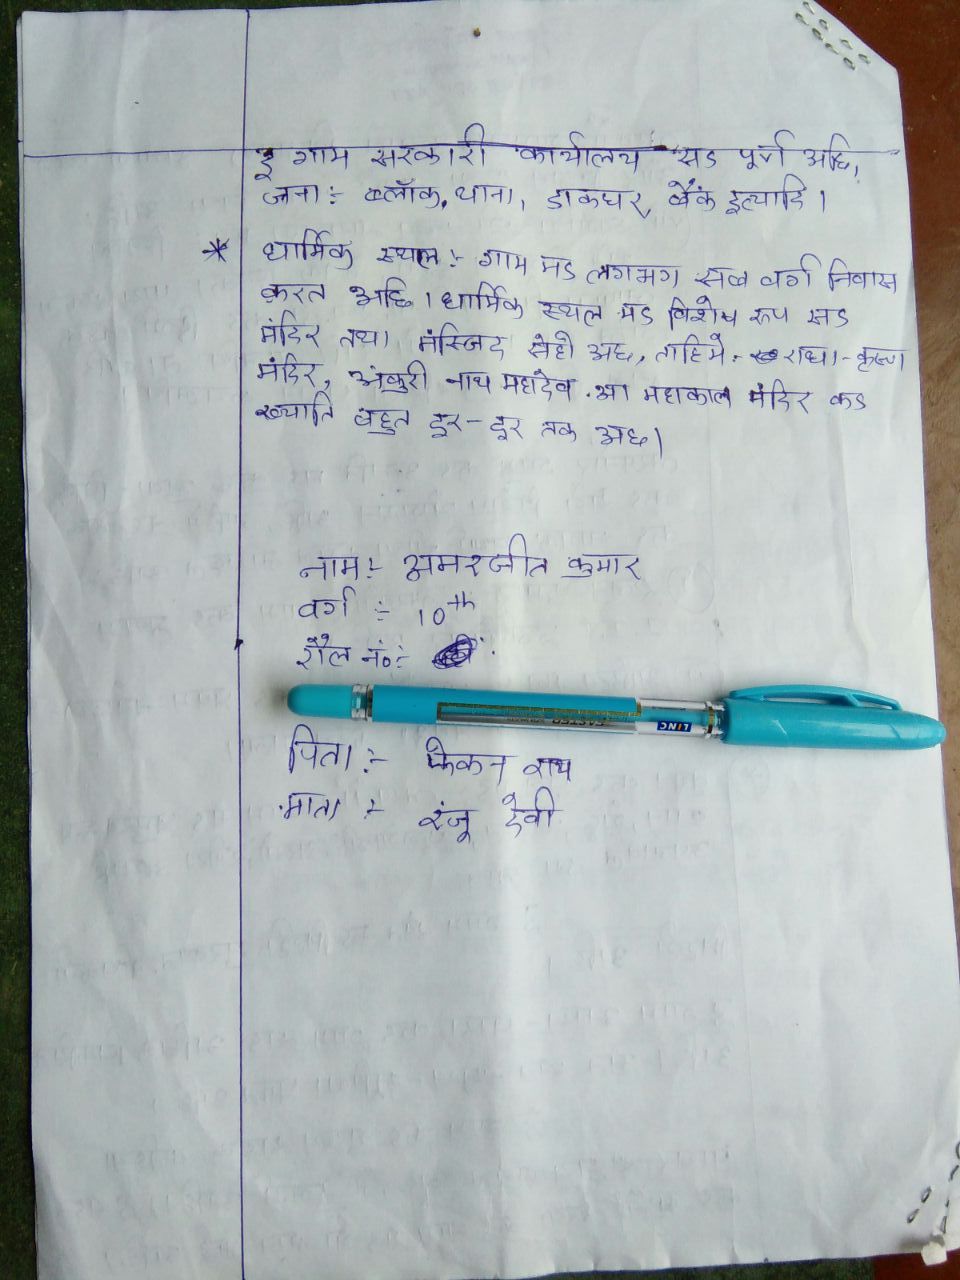 इ गाम सरकारी कार्यालय सड पूर्ण अछि,
जेना :- ब्लॉक, थाना, डाकघर, बैंक इत्यादि ।
* धार्मिक स्थल :- गाम मड लगभग सब वर्ग निवास
करत अछि । धार्मिक स्थल मड विशेष रूप सड
मंदिर तथा मंस्जिद सेहो अछ, ताहिमे राधा-कृष्ण
मंदिर, अंकुरी नाथ महादेव आ महाकाल मंदिर कड
ख्याति बहुत दूर-दूर तक अछ।
नाम :- अमरजीत कुमार
वर्ग :- 10th
रौल नं० :-
LINC
पिता :- फेकन राय
माता :- रंजू देवी